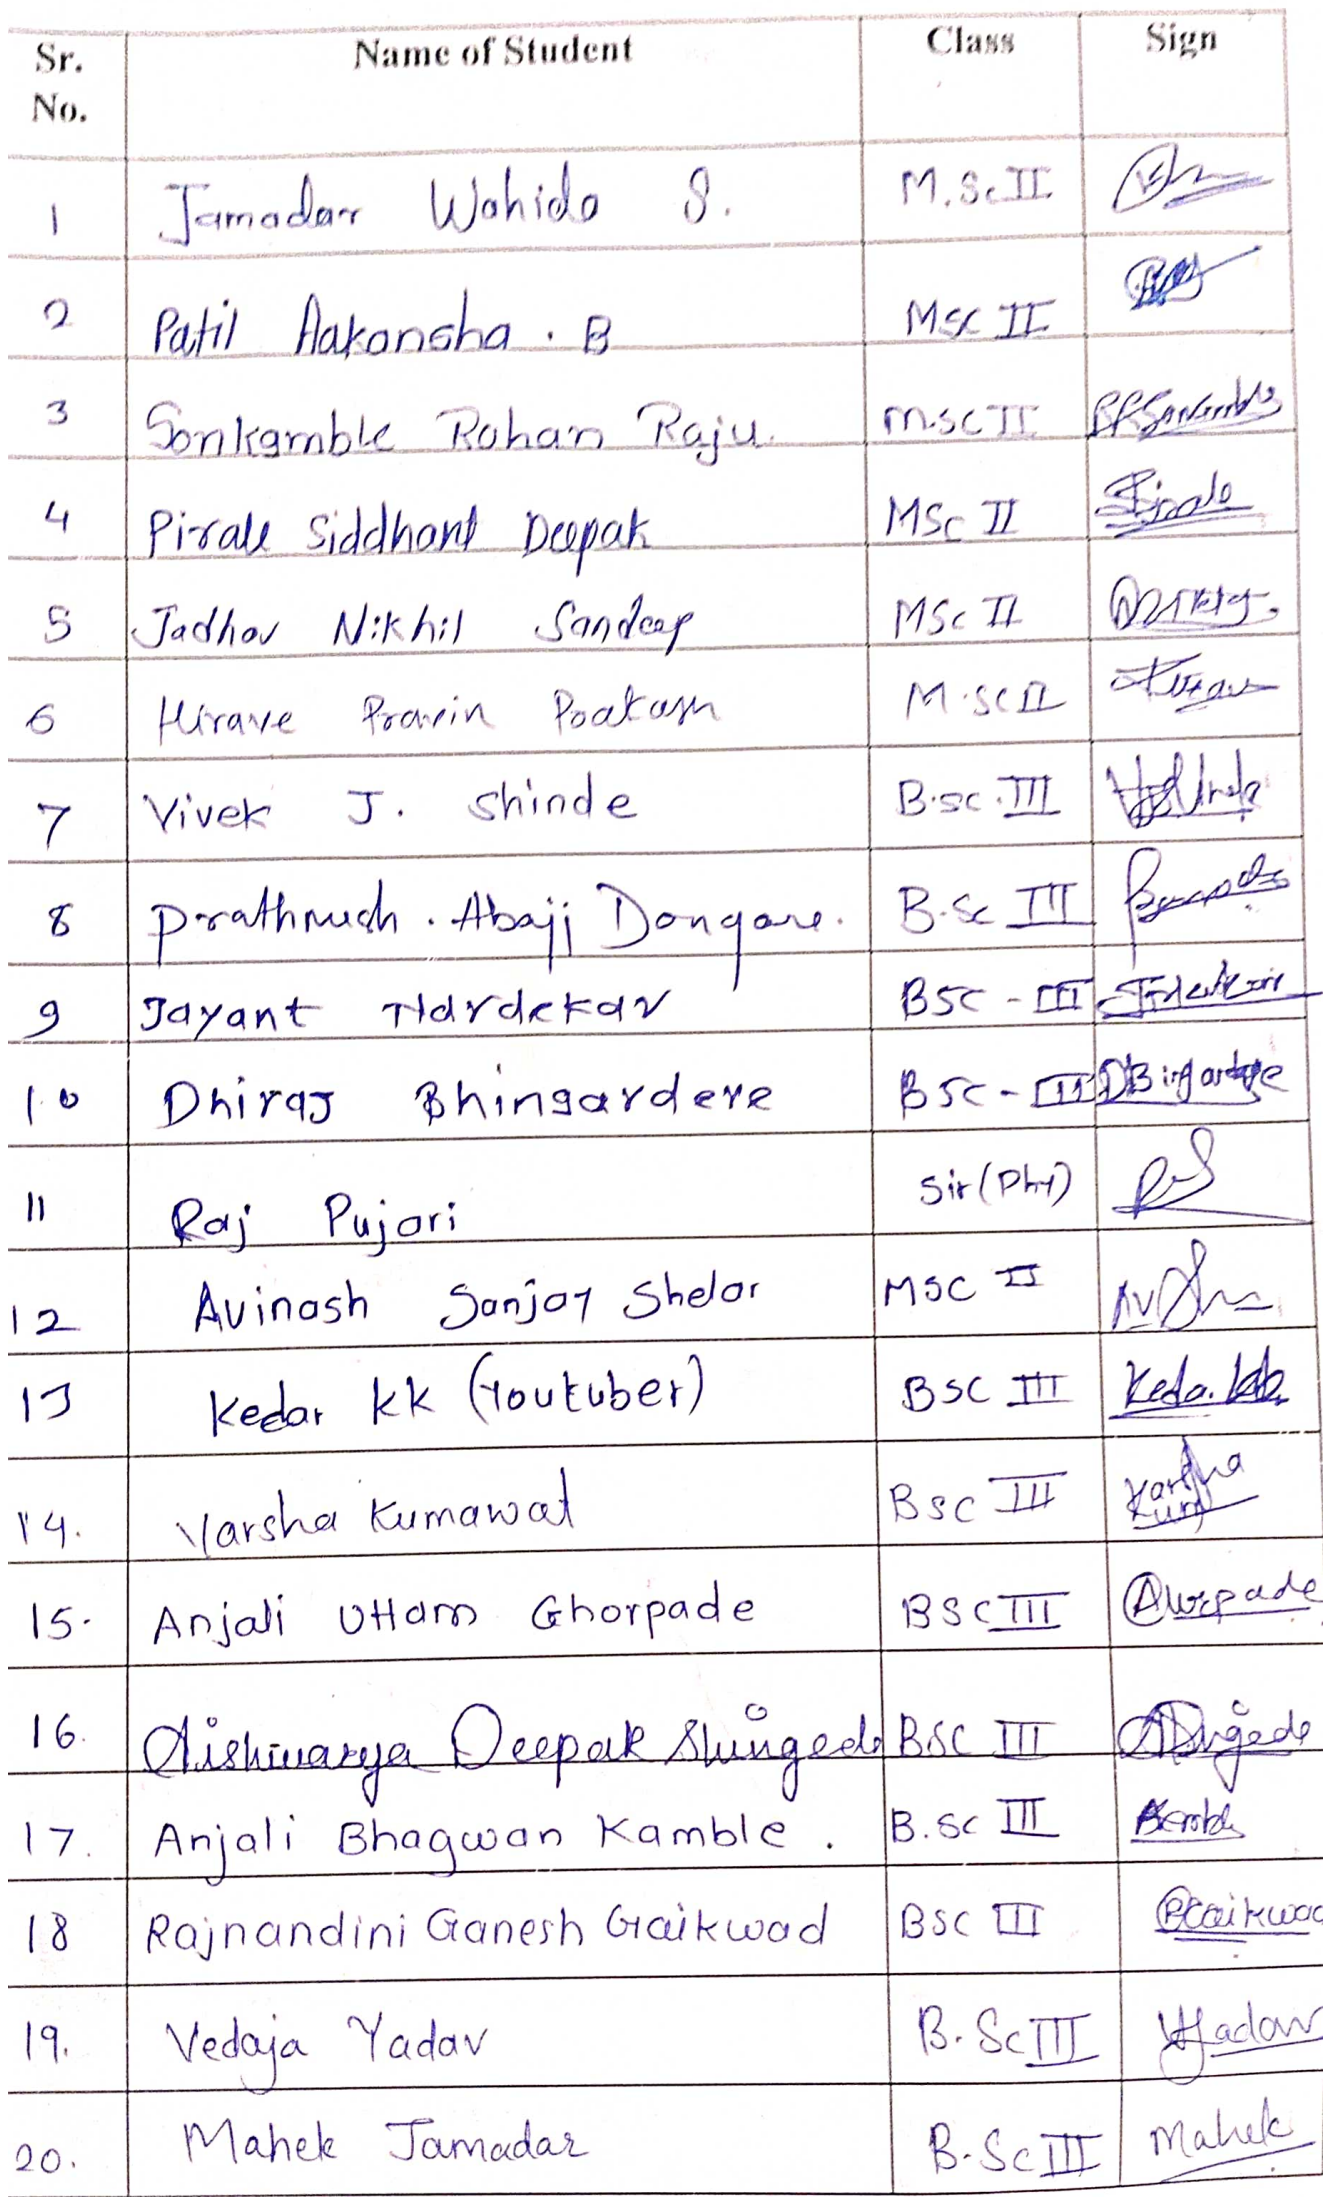 Sr. No. Name of Student Class Sign
1 Jamadar Wahida S. M.Sc II
2 Patil Aakansha . B MSc II
3 Sonkamble Rohan Raju. M.sc II RRSonkamble
4 Pirale Siddhant Deepak MSc II
5 Jadhav Nikhil Sandeep MSc II
6 Hirave Pravin Prakash M.SC II
7 Vivek J. Shinde B.sc. III
8 Prathmesh . Abaji Dongare. B.Sc III
9 Jayant Hardekar BSC - III
10 Dhiraj Bhingardeve BSC - III
11 Raj Pujari Sir (Phy)
12 Avinash Sanjay Shelar MSC II
13 Kedar KK (Youtuber) BSC III
14. Varsha Kumawat BSC III Varsha
15. Anjali Uttam Ghorpade BSC III
16. Aishwarya Deepak Shingade BSC III
17. Anjali Bhagwan Kamble . B.Sc III
18 Rajnandini Ganesh Gaikwad BSC III
19. Vedaja Yadav B.Sc III
20. Mahek Jamadar B.Sc III Mahek